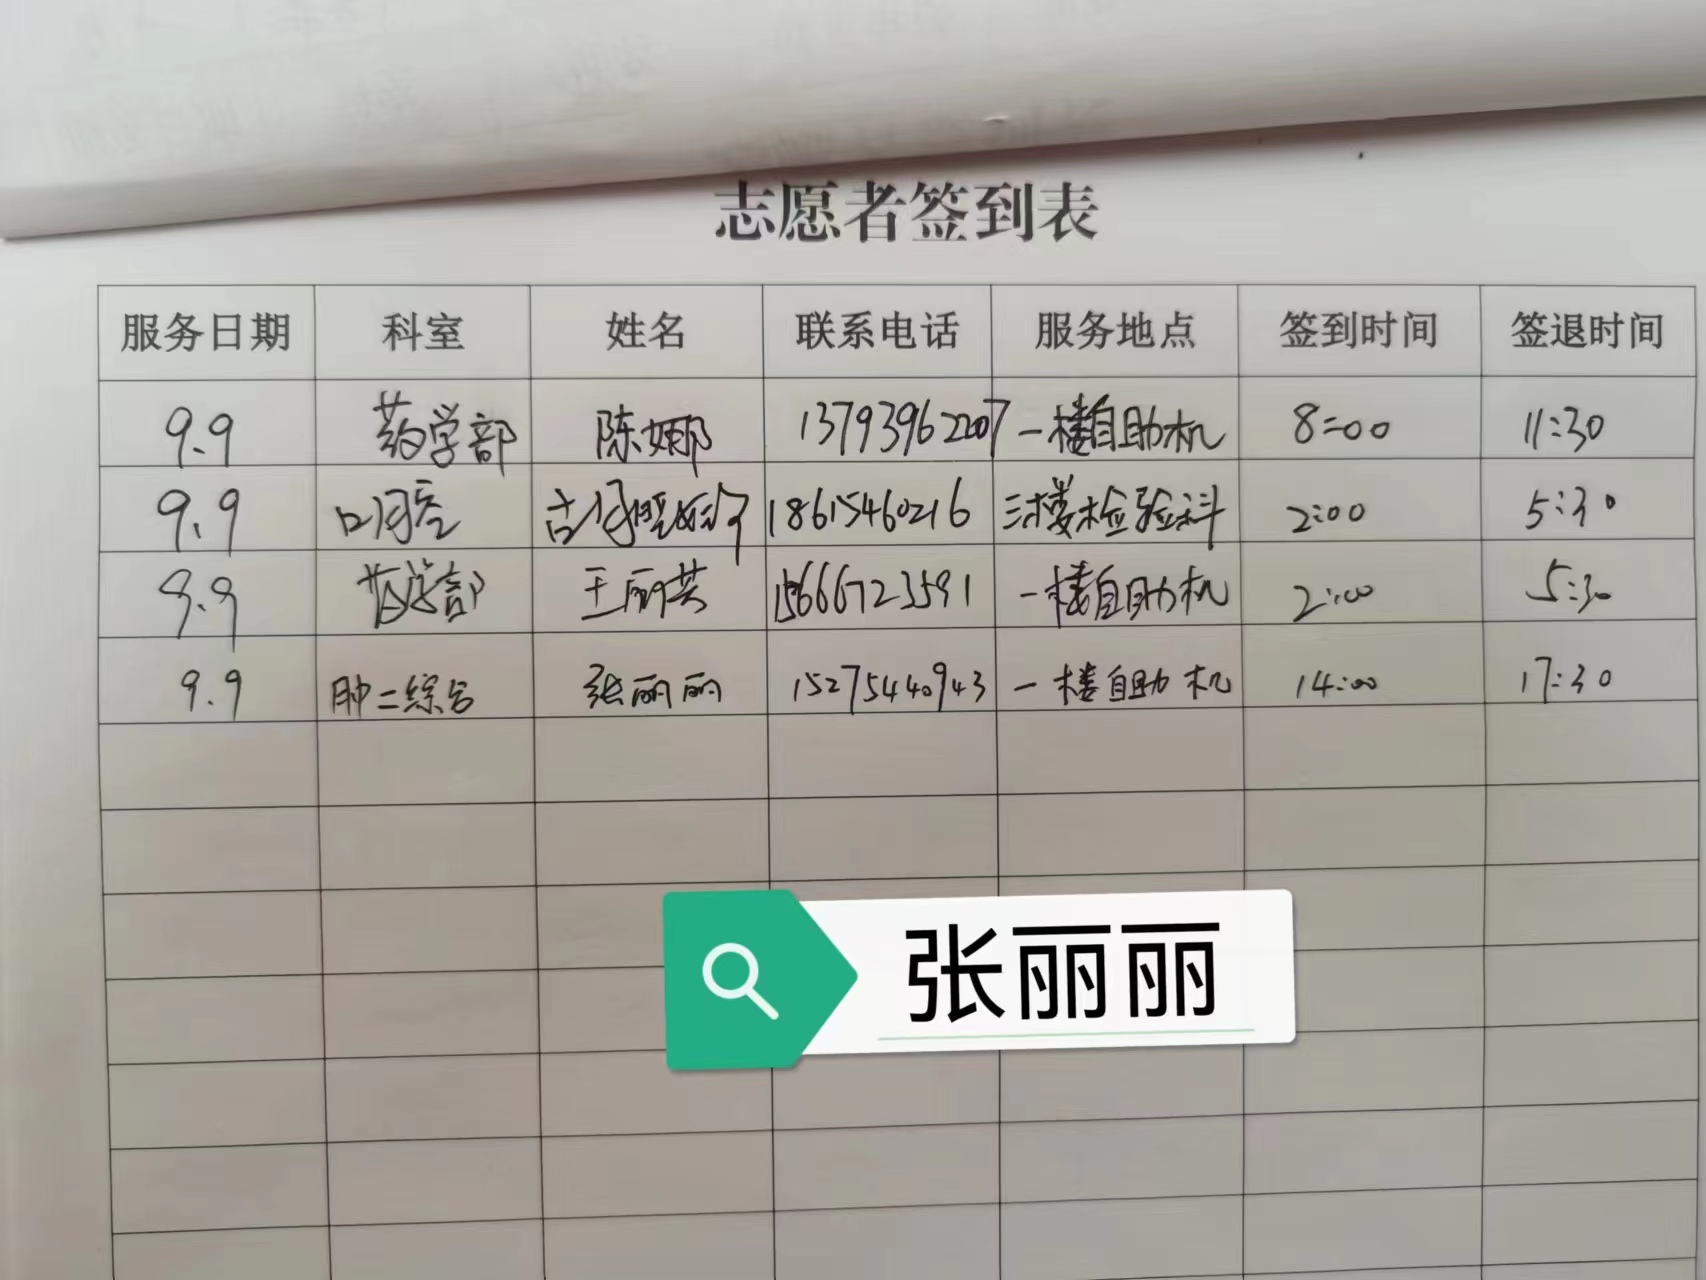 志愿者签到表
服务日期 科室 姓名 联系电话 服务地点 签到时间 签退时间
9.9 药学部 陈娜 13793962207 一楼自助机 8:00 11:30
9.9 口腔 胡晓婷 18615460216 三楼检验科 2:00 5:30
9.9 药学部 王丽英 15666723591 一楼自助机 2:00 5:30
9.9 肿二综合 张丽丽 15275440943 一楼自助机 14:00 17:30
张丽丽